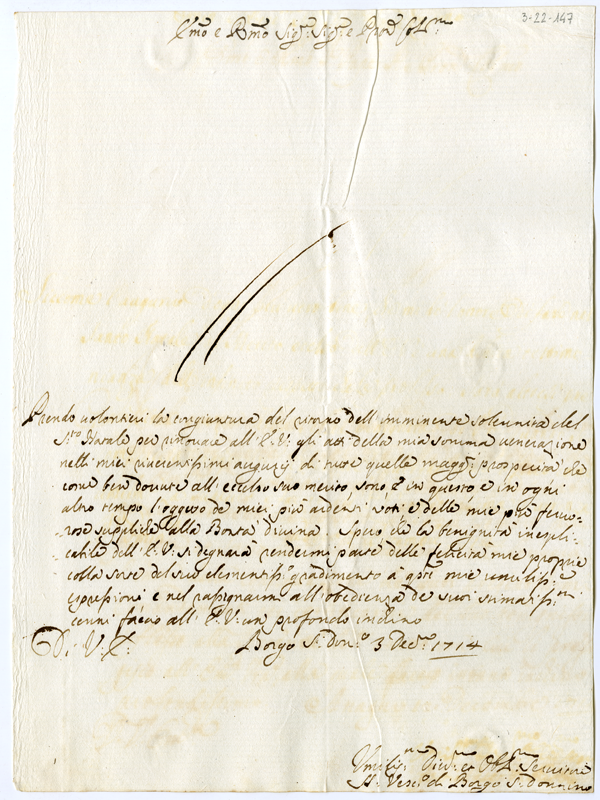 3-22-147
E͞mo e R͞mo Sig.r Sig.r e Pron Col.mo
Prendo volontieri la congiuntura del ritorno dell'imminente solennità del
S.to Natale per rinovare all'E. V. gli atti della mia somma venerazione
nelli miei riverentissimi augurij di tutte quelle magg.ri prosperità che
come ben dovute all'eccelso suo merito, sono, e in questo e in ogni
altro tempo l'oggetto de' miei più ardenti voti, e delle mie più fervo-
-rose suppliche alla Bontà divina. Spero che la benignità inespli-
-cabile dell'E. V. si degnarà rendermi parte delle felicità mie proprie
colla sorte del suo clementiss.o gradimento à q̃ste mie umiliss.e
espressioni e nel rassegnarmi all'obedienza de' suoi stimatiss.mi
cenni faccio all'E. V. un profondo inclino
Di V. E. Borgo S. Don.o 3 Dec.e 1714
Umilis.mo Div.mo et Obl.mo Servitore
Il Vesc.o di Borgo S. Donnino